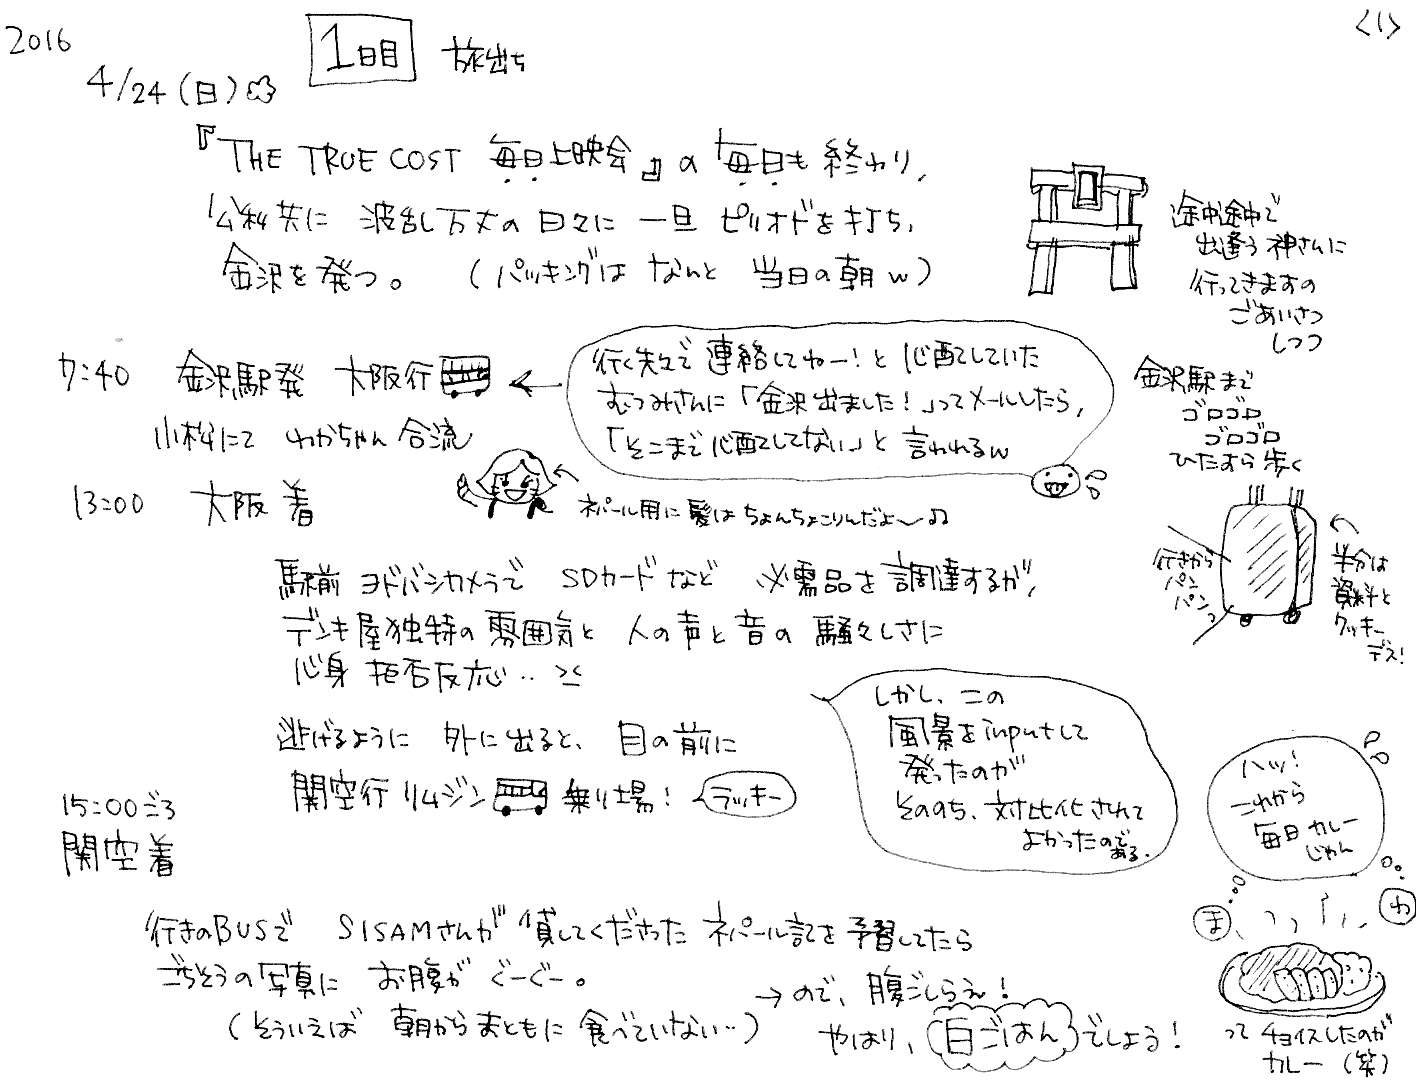 2016
4/24(日)
1日目 旅出ち
<1>
『THE TRUE COST 毎日上映会』の毎日も終わり、
公私共に 波乱万丈の日々に 一旦 ピリオドを打ち、
金沢を発つ。 (パッキングは なんと 当日の朝w)
途中途中で
出逢う神さんに
行ってきますの
ごあいさつ
しつつ
7:40 金沢駅発 大阪行
小松にて わかちゃん合流
行く先々で連絡してねー!と心配していた
むつみさんに「金沢出ました!」ってメールしたら、
「そこまで心配してない」と言われるw
金沢駅まで
ゴロゴロ
ゴロゴロ
ひたすら歩く
13:00 大阪着
ネパール用に髪はちょんちょこりんだよ〜♫
行きから
パン
パンっ
半分は
資料と
クッキー
デス!
駅前ヨドバシカメラで SDカードなど 必需品を調達するが、
デンキ屋独特の雰囲気と 人の声と音の 騒々しさに
心身 拒否反応‥ ><
逃げるように 外に出ると、目の前に
関空行リムジン 乗り場! ラッキー
しかし、この
風景をinputして
発ったのが
そののち、対比化されて
よかったので
ある.
15:00ごろ
関空着
ハッ!
これから
毎日カレー
じゃん
ま
わ
行きのBUSで SISAMさんが 貸してくださった ネパール記を予習してたら
ごちそうの写真に お腹が ぐーぐー。
(そういえば 朝からまともに 食べていない‥)
→ので、腹ごしらえ!
やはり、白ごはんでしょう!
って チョイスしたのが
カレー(笑)